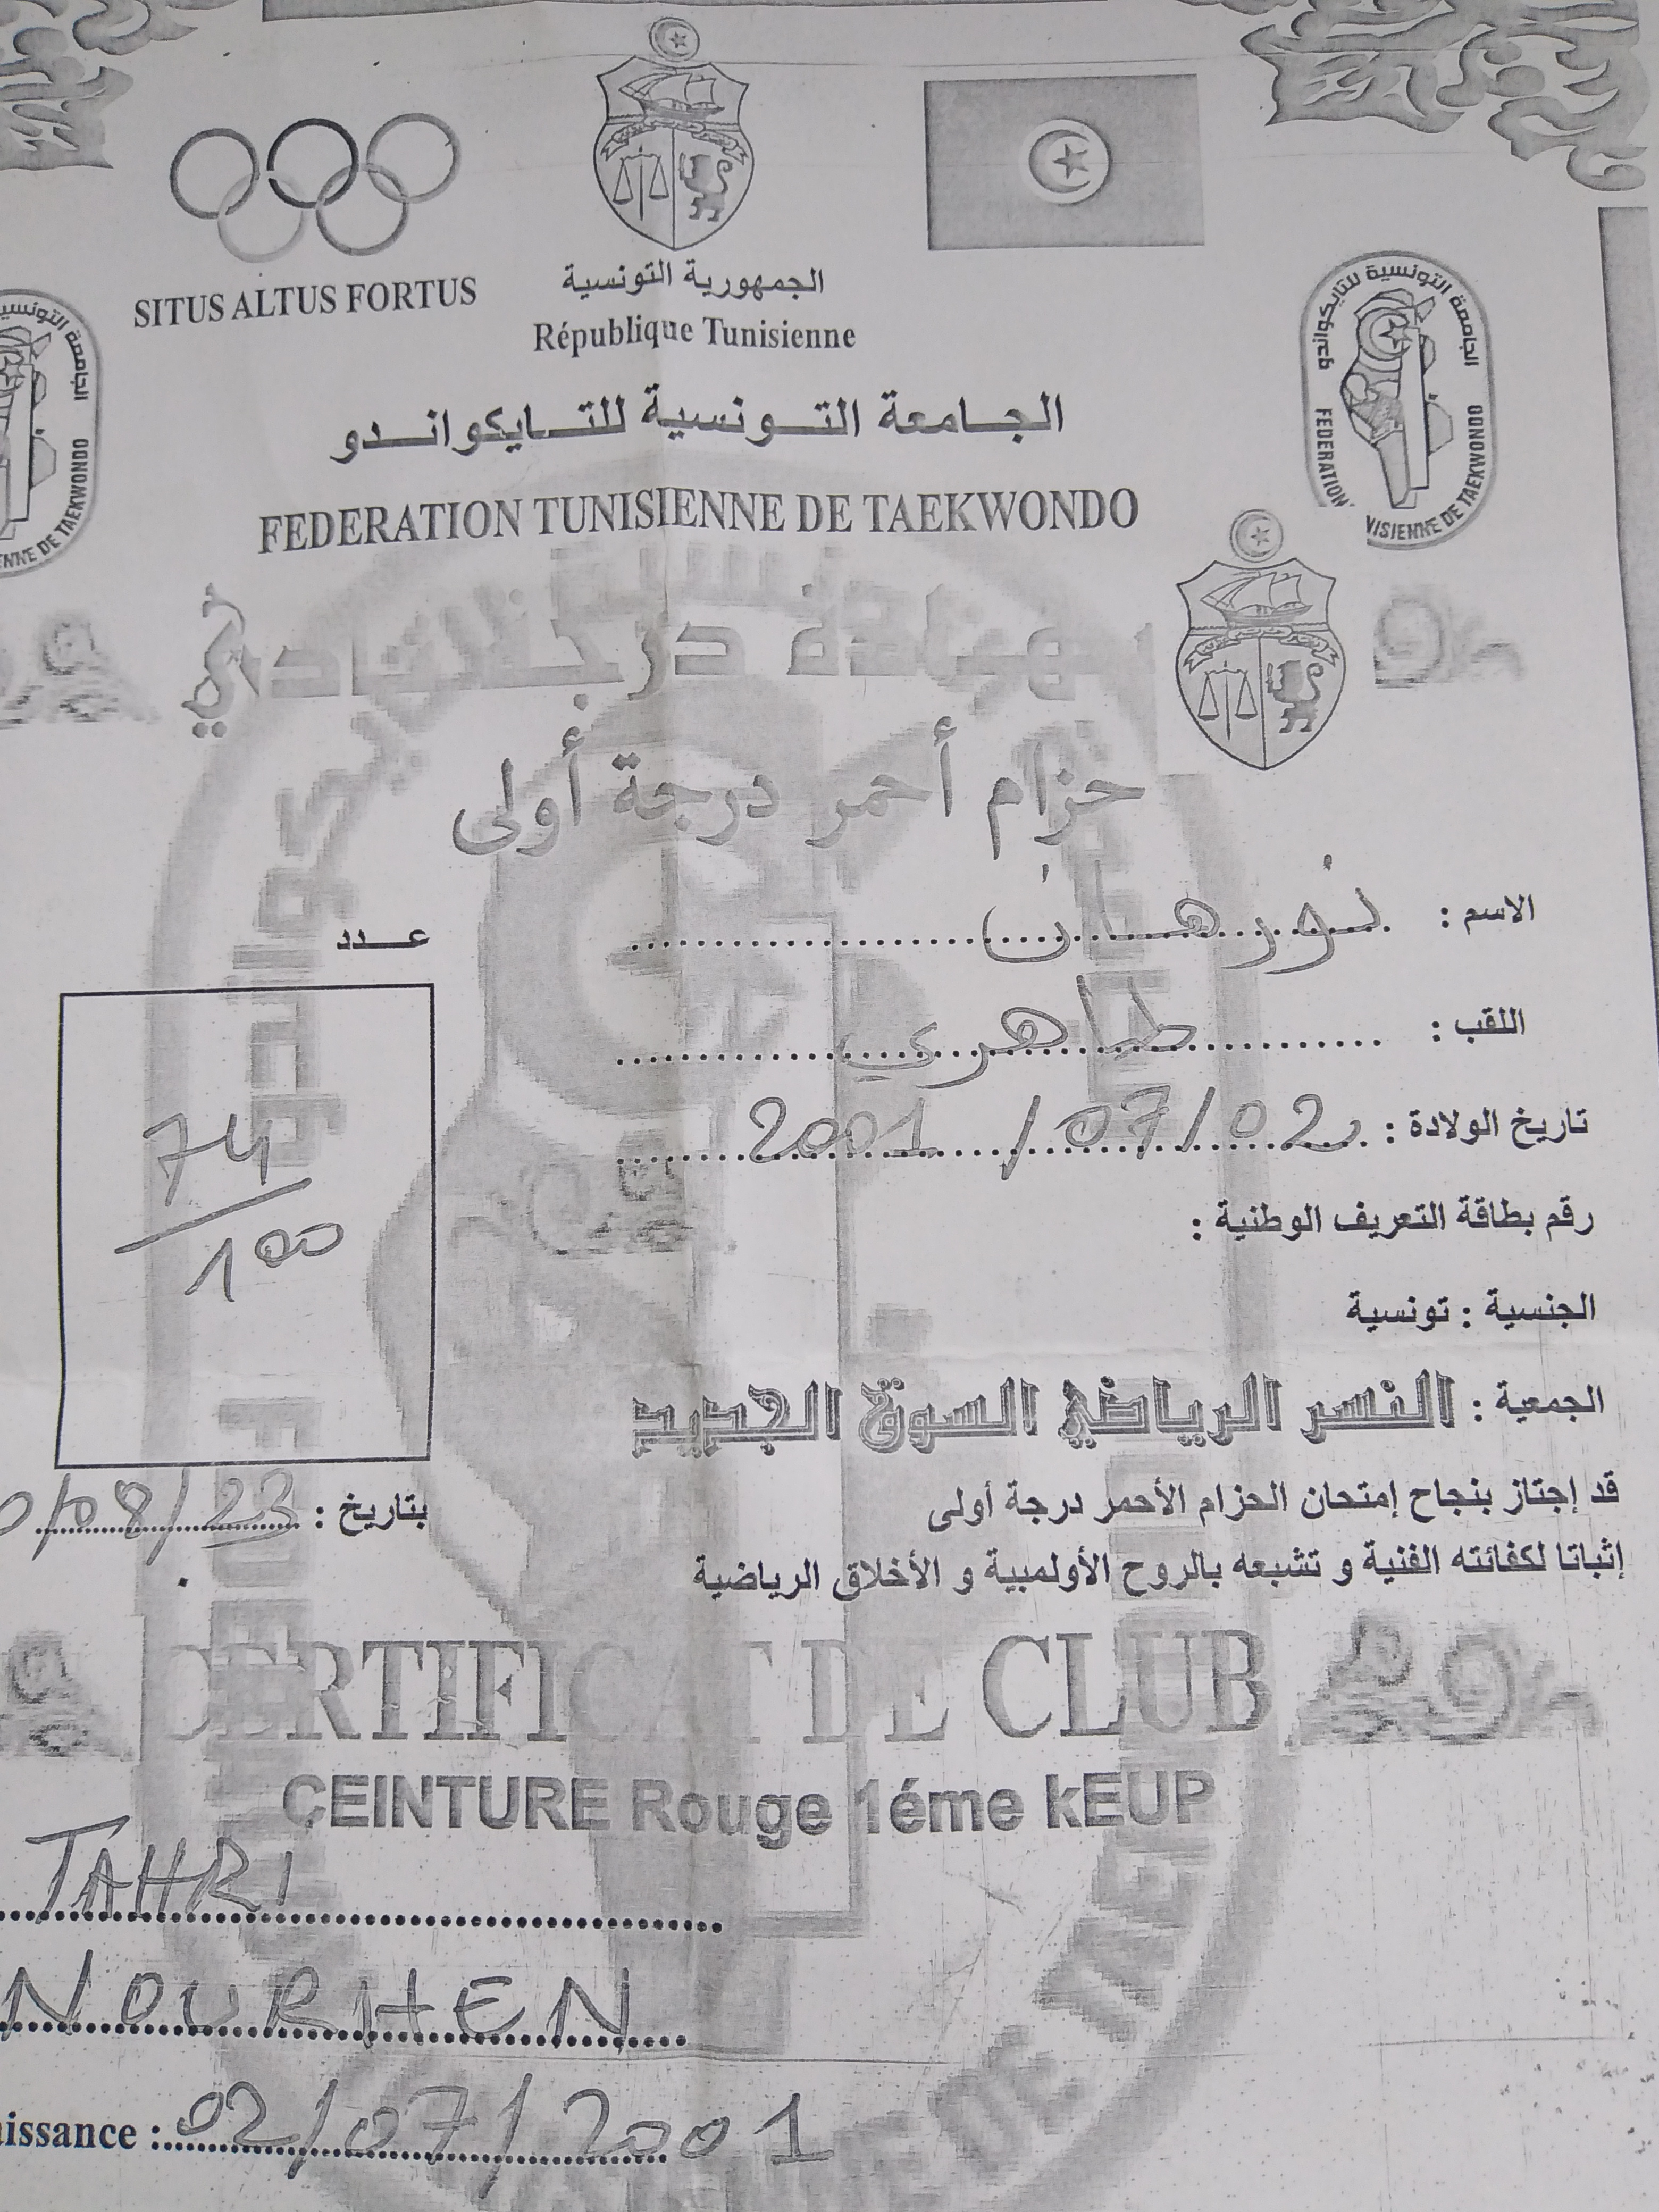 SITUS ALTUS FORTUS
الجمهورية التونسية
République Tunisienne
الجامعة التونسية للتايكواندو
الجامعة التونسية للتايكواندو
FEDERATION
TUNISIENNE DE TAEKWONDO
FEDERATION TUNISIENNE DE TAEKWONDO
شهادة درجة نادي
حزام أحمر درجة أولى
الاسم : نورهان
عدد
اللقب : طاهري
تاريخ الولادة : 2001 / 07 / 02
74
100
رقم بطاقة التعريف الوطنية :
الجنسية : تونسية
الجمعية : النسر الرياضي السوق الجديد
قد إجتاز بنجاح إمتحان الحزام الأحمر درجة أولى
بتاريخ : 23/08/
إثباتا لكفائته الفنية و تشبعه بالروح الأولمبية و الأخلاق الرياضية
CERTIFICAT DE CLUB
CEINTURE Rouge 1éme kEUP
TAHRI
NOURHEN
aissance : 02/07/2001